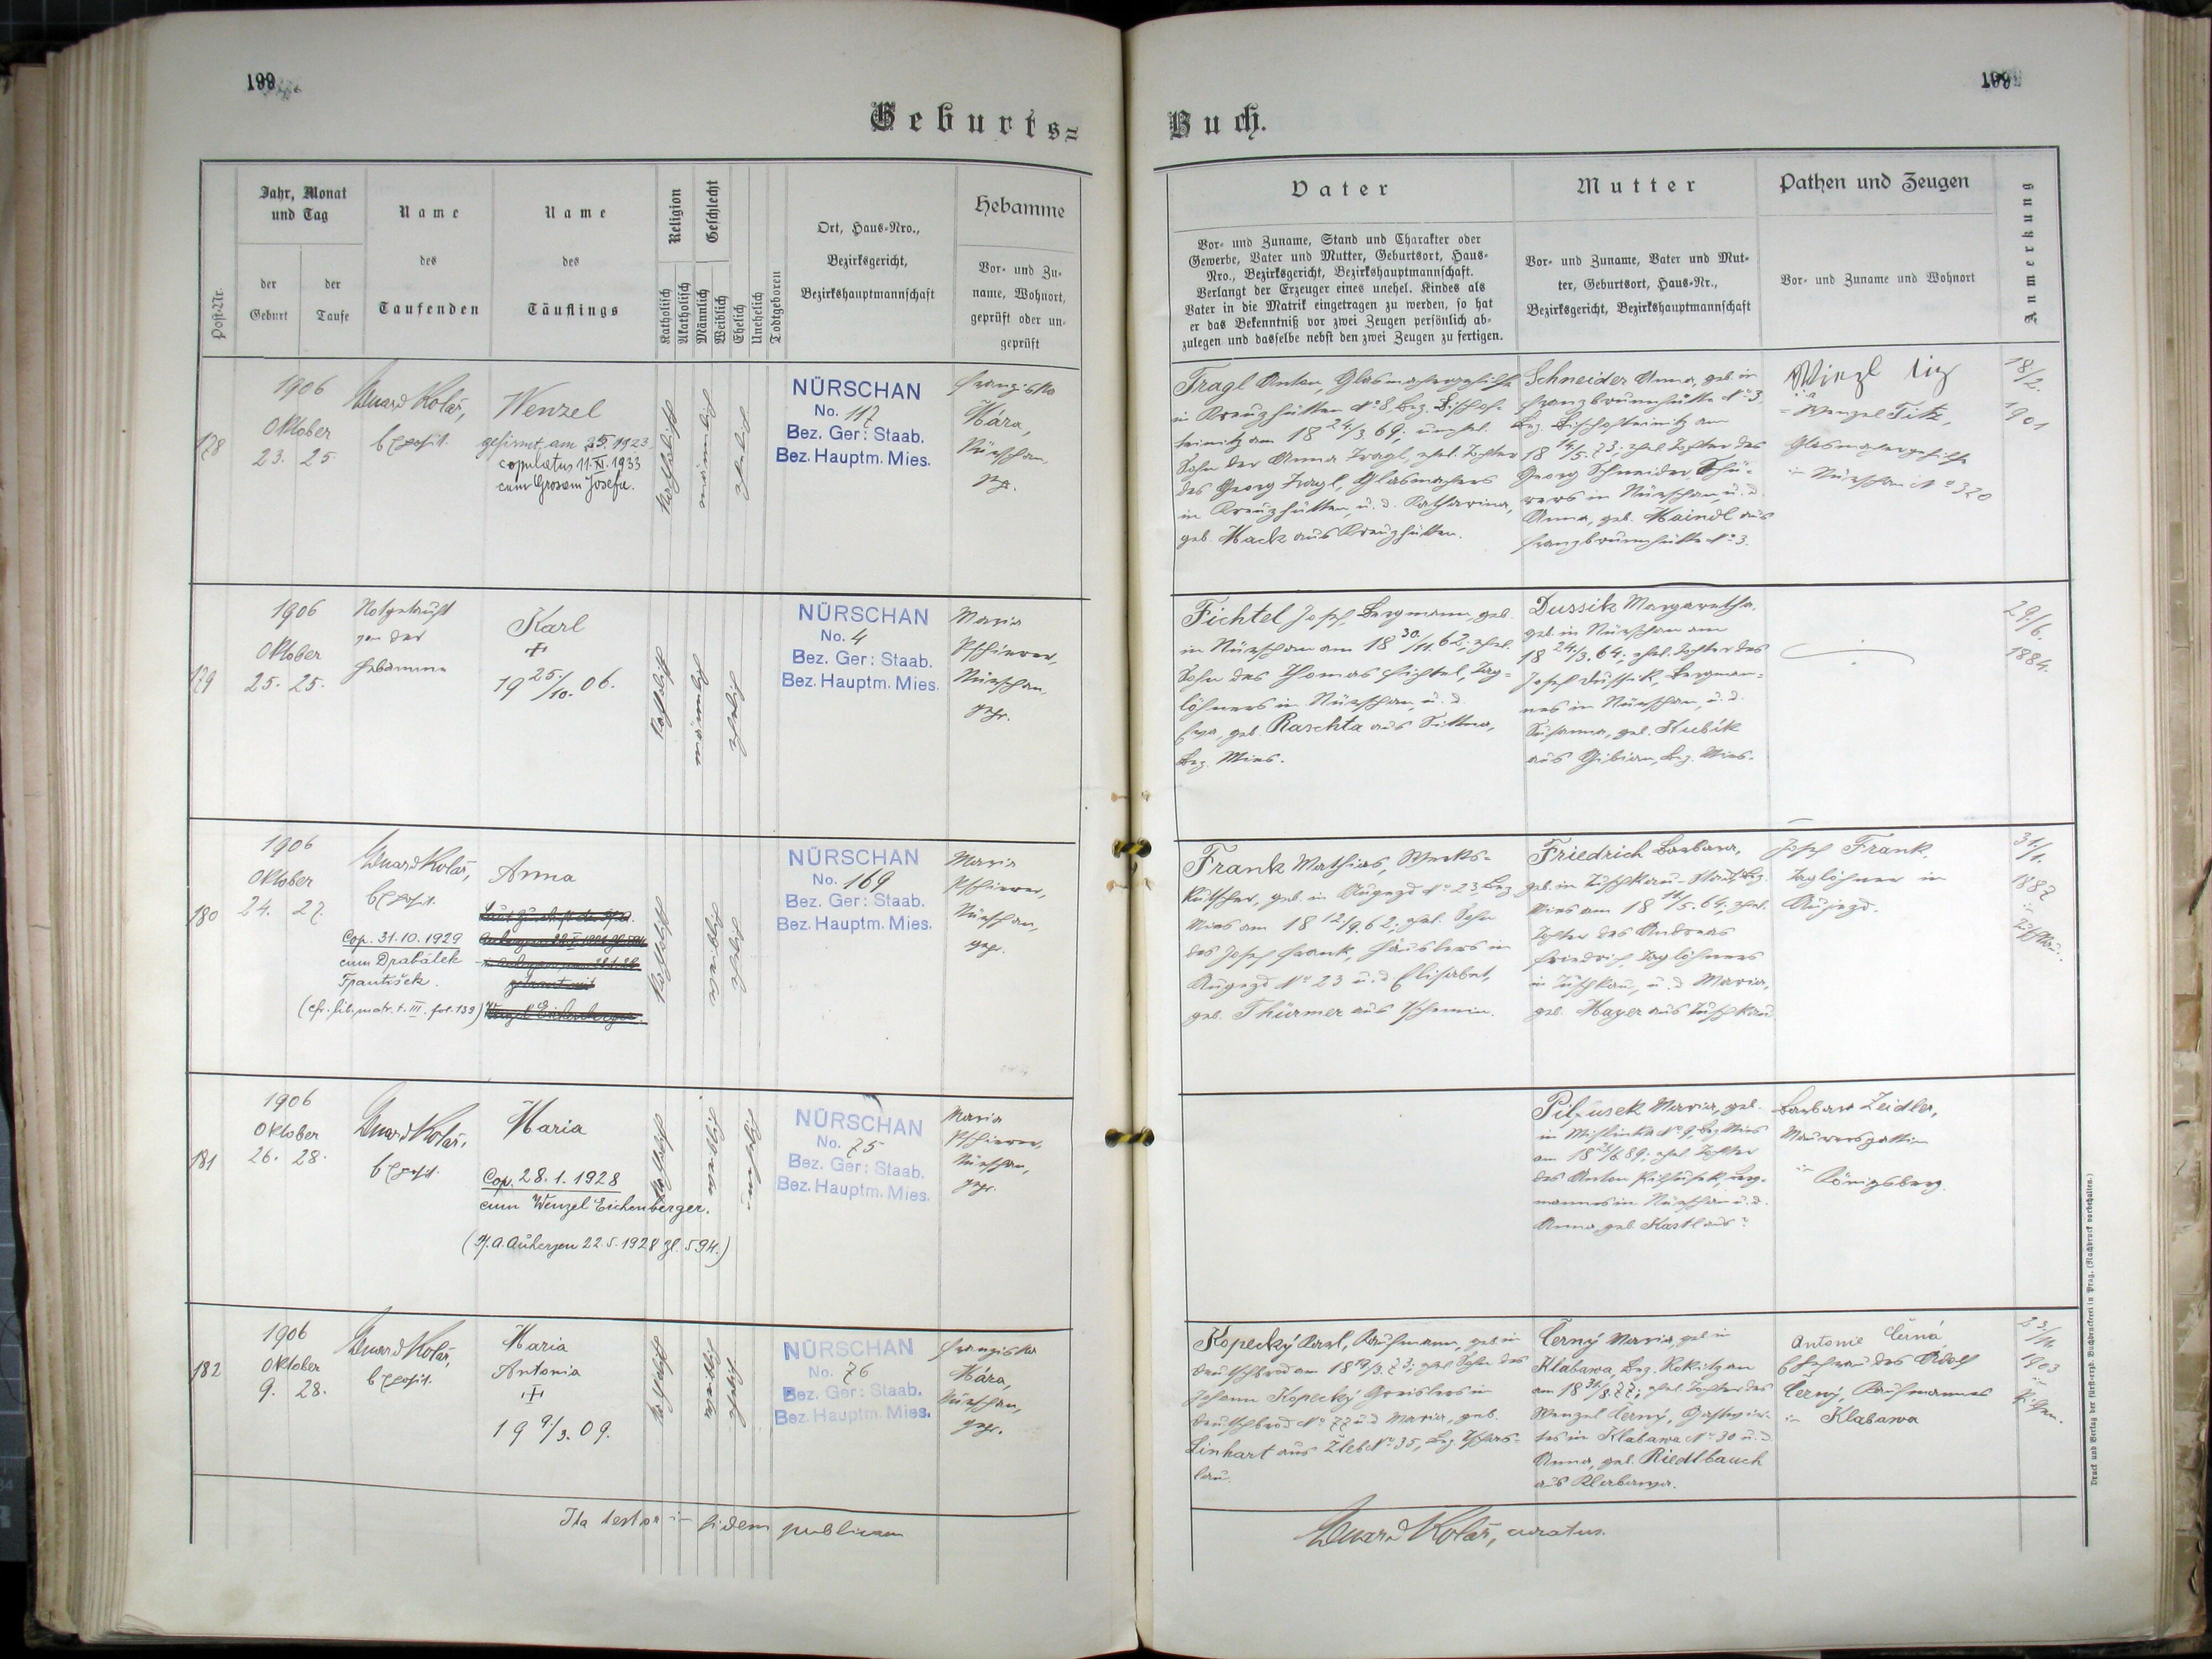 199
199
Geburts=
Buch.
Post-Nr.
Jahr, Monat
und Tag
der
Geburt
der
Taufe
Name
des
Taufenden
Name
des
Täuflings
Religion
Katholisch
Akatholisch
Geschlecht
Männlich
Weiblich
Ehelich
Unehelich
Todtgeboren
Ort, Haus-Nro.,
Bezirksgericht,
Bezirkshauptmannschaft
Hebamme
Vor- und Zu-
name, Wohnort,
geprüft oder un-
geprüft
Vater
Vor- und Zuname, Stand und Charakter oder
Gewerbe, Vater und Mutter, Geburtsort, Haus-
Nro., Bezirksgericht, Bezirkshauptmannschaft.
Verlangt der Erzeuger eines unehel. Kindes als
Vater in die Matrik eingetragen zu werden, so hat
er das Bekenntniß vor zwei Zeugen persönlich ab-
zulegen und dasselbe nebst den zwei Zeugen zu fertigen.
Mutter
Vor- und Zuname, Vater und Mut-
ter, Geburtsort, Haus-Nr.,
Bezirksgericht, Bezirkshauptmannschaft
Pathen und Zeugen
Vor- und Zuname und Wohnort
Anmerkung
178
1906
Oktober
23. 25.
Eduard Kolář,
Exposit.
Wenzel
gefirmt am 1923
copulatus 11. XI. 1933
cum Grosam Josefa.
katholisch
männlich
ehelich
NÜRSCHAN
No. 117
Bez. Ger: Staab.
Bez. Hauptm. Mies.
Franziska
Hára,
Nürschan,
Tragl Anton, Glasmachergehilfe
in Kreuzhütten N° 8, Bez. Bischof-
teinitz am 18 24/3. 69; unehel.
Sohn der Anna Tragl, ehel. Tochter
des Georg Tragl, Glasmachers
in Kreuzhütten, u. d. Katharina,
geb. Hack aus Kreuzhütten.
Schneider Anna, geb. in
Franzbrunnhütte N° 3,
Bez. Bischofteinitz am
18 14/5. 73; ehel. Tochter des
Georg Schneider, Schü-
rers in Nürschan, u. d.
Anna, geb. Haindl aus
Franzbrunnhütte N° 3.
= Wenzel Titz,
Glasmachergehilfe
in Nürschan N° 320
18/2.
1901
179
1906
Oktober
25. 25.
Notgetauft
von der
Hebamme
Karl
+
19 25./10. 06.
katholisch
männlich
ehelich
NÜRSCHAN
No. 4
Bez. Ger: Staab.
Bez. Hauptm. Mies.
Maria
Pschierer,
Nürschan,
gepr.
Fichtel Josef, Bergmann, geb.
in Nürschan am 18 30./11. 62; ehel.
Sohn des Thomas Fichtel, Tag-
löhners in Nürschan, u. d.
Eva, geb. Raschta aus Sittna,
Bez. Mies.
Dussik Margaretha,
geb. in Nürschan am
18 24/3. 64; ehel. Tochter des
Josef Dussik, Bergman-
nes in Nürschan, u. d.
Susanna, geb. Kubik
aus Gibian, Bez. Mies.
29./6.
1884.
180
1906
Oktober
24. 27.
Eduard Kolář,
Exposit.
Cop. 31.10.1929
cum Drabálek
František.
(cfr. lib. matr. t. III. fol. 139)
Anna
katholisch
weiblich
ehelich
NÜRSCHAN
No. 169
Bez. Ger: Staab.
Bez. Hauptm. Mies.
Maria
Pschierer,
Nürschan,
gepr.
Frank Mathias, Werks-
kutscher, geb. in Augezd N° 23, Bez.
Mies am 18 12/9. 62; ehel. Sohn
des Josef Frank, Häuslers in
Augezd N° 23 u. d. Elisabet,
geb. Thürmer aus Tschemin.
Friedrich Barbara,
geb. in Tuschkau-Stadt, Bez.
Mies am 18 11/5. 64; ehel.
Tochter des Andreas
Friedrich, Taglöhners
in Tuschkau, u. d. Maria,
geb. Mayer aus Tuschkau
Josef Frank,
Taglöhner in
Augezd.
31./1.
1887
in
Tuschkau.
181
1906
Oktober
26. 28.
Eduard Kolář,
Exposit.
Maria
Cop. 28. 1. 1928
cum Wenzel Eichenberger.
(Pf. A. Auherzen 22.5.1928 Zl. 594.)
katholisch
weiblich
unehelich
NÜRSCHAN
No. 75
Bez. Ger: Staab.
Bez. Hauptm. Mies.
Maria
Pschierer,
Nürschan,
gepr.
Pilfusek Maria, geb.
in Mislinka N° 9, Bez. Mies
89; ehel. Tochter
des Anton Pilfusek, Berg-
mannes in Nürschan u. d.
Anna, geb. Kastl aus ?
Barbara Zeidler,
Maurersgattin
in Königsberg.
182
1906
Oktober
9. 28.
Eduard Kolář,
Exposit.
Maria
Antonia
+
19 9./3. 09.
katholisch
weiblich
ehelich
NÜRSCHAN
No. 76
Bez. Ger: Staab.
Bez. Hauptm. Mies.
Franziska
Hára,
Nürschan,
gepr.
Kopecký Karl, Kaufmann, geb. in
Deutschbrod am 73; ehel. Sohn des
Johann Kopecký, Greislers in
Deutschbrod N° 77 u. d. Maria, geb.
Linhart aus Žleb N° 35, Bez. Tschas-
lau.
Černý Maria, geb. in
Klabawa, Bez. Rokitzan
am 18 31/8. 77; ehel. Tochter des
Wenzel Černý, Gastwir-
tes in Klabawa N° 30 u. d.
Anna, geb. Riedlbauch
aus Klabawa.
Antonie Černá
Ehefrau des Adolf
Černý, Kaufmannes
in Klabawa
1903
in
Pilsen.
Ita testor in fidem publicam
Eduard Kolář, curatus.
Druck und Verlag der fürst-erzb. Buchdruckerei in Prag. (Nachdruck vorbehalten.)